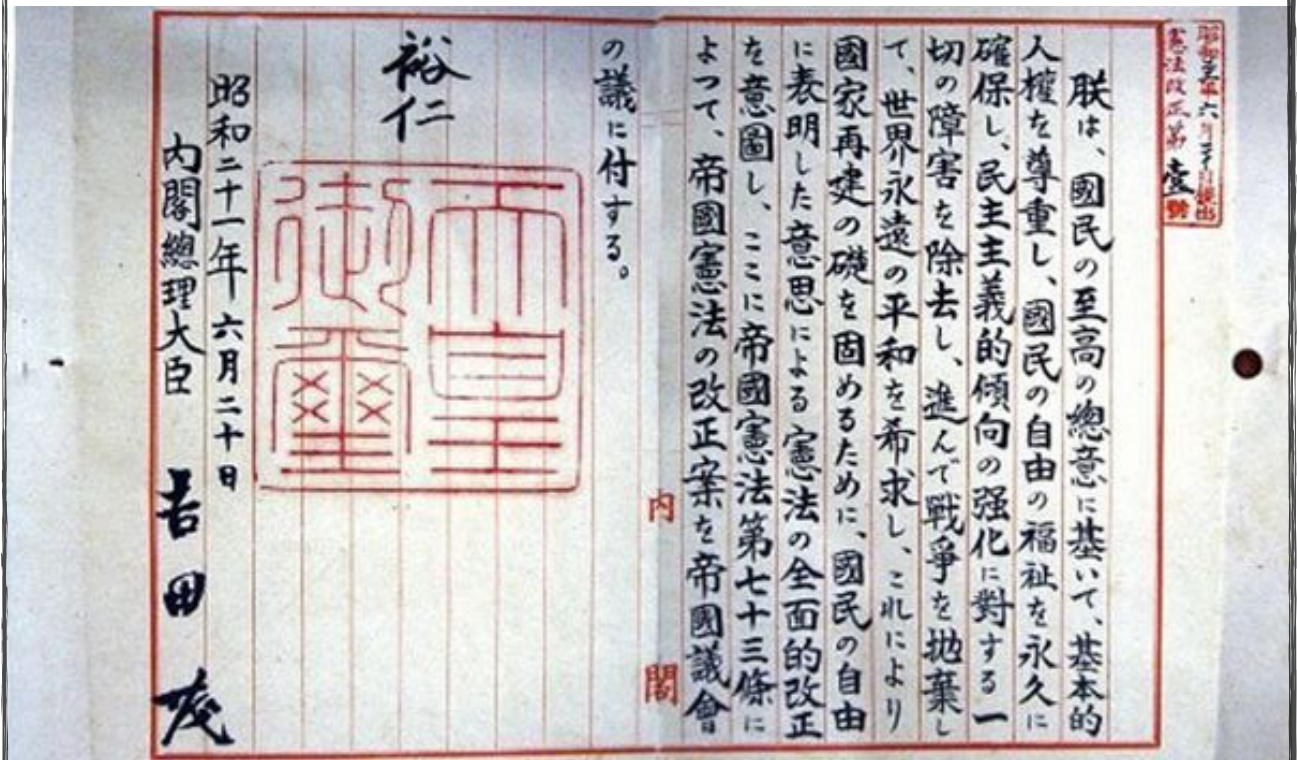 昭和二十一年六月二十日提出
憲法改正第壹號
朕は、國民の至高の總意に基いて、基本的
人權を尊重し、國民の自由の福祉を永久に
確保し、民主主義的傾向の强化に對する一
切の障害を除去し、進んで戰爭を抛棄し
て、世界永遠の平和を希求し、これにより
國家再建の礎を固めるために、國民の自由
に表明した意思による憲法の全面的改正
を意圖し、ここに帝國憲法第七十三條に
よつて、帝國憲法の改正案を帝國議會
の議に付する。
內閣
裕仁
天皇
御璽
昭和二十一年六月二十日
内閣總理大臣 吉田茂